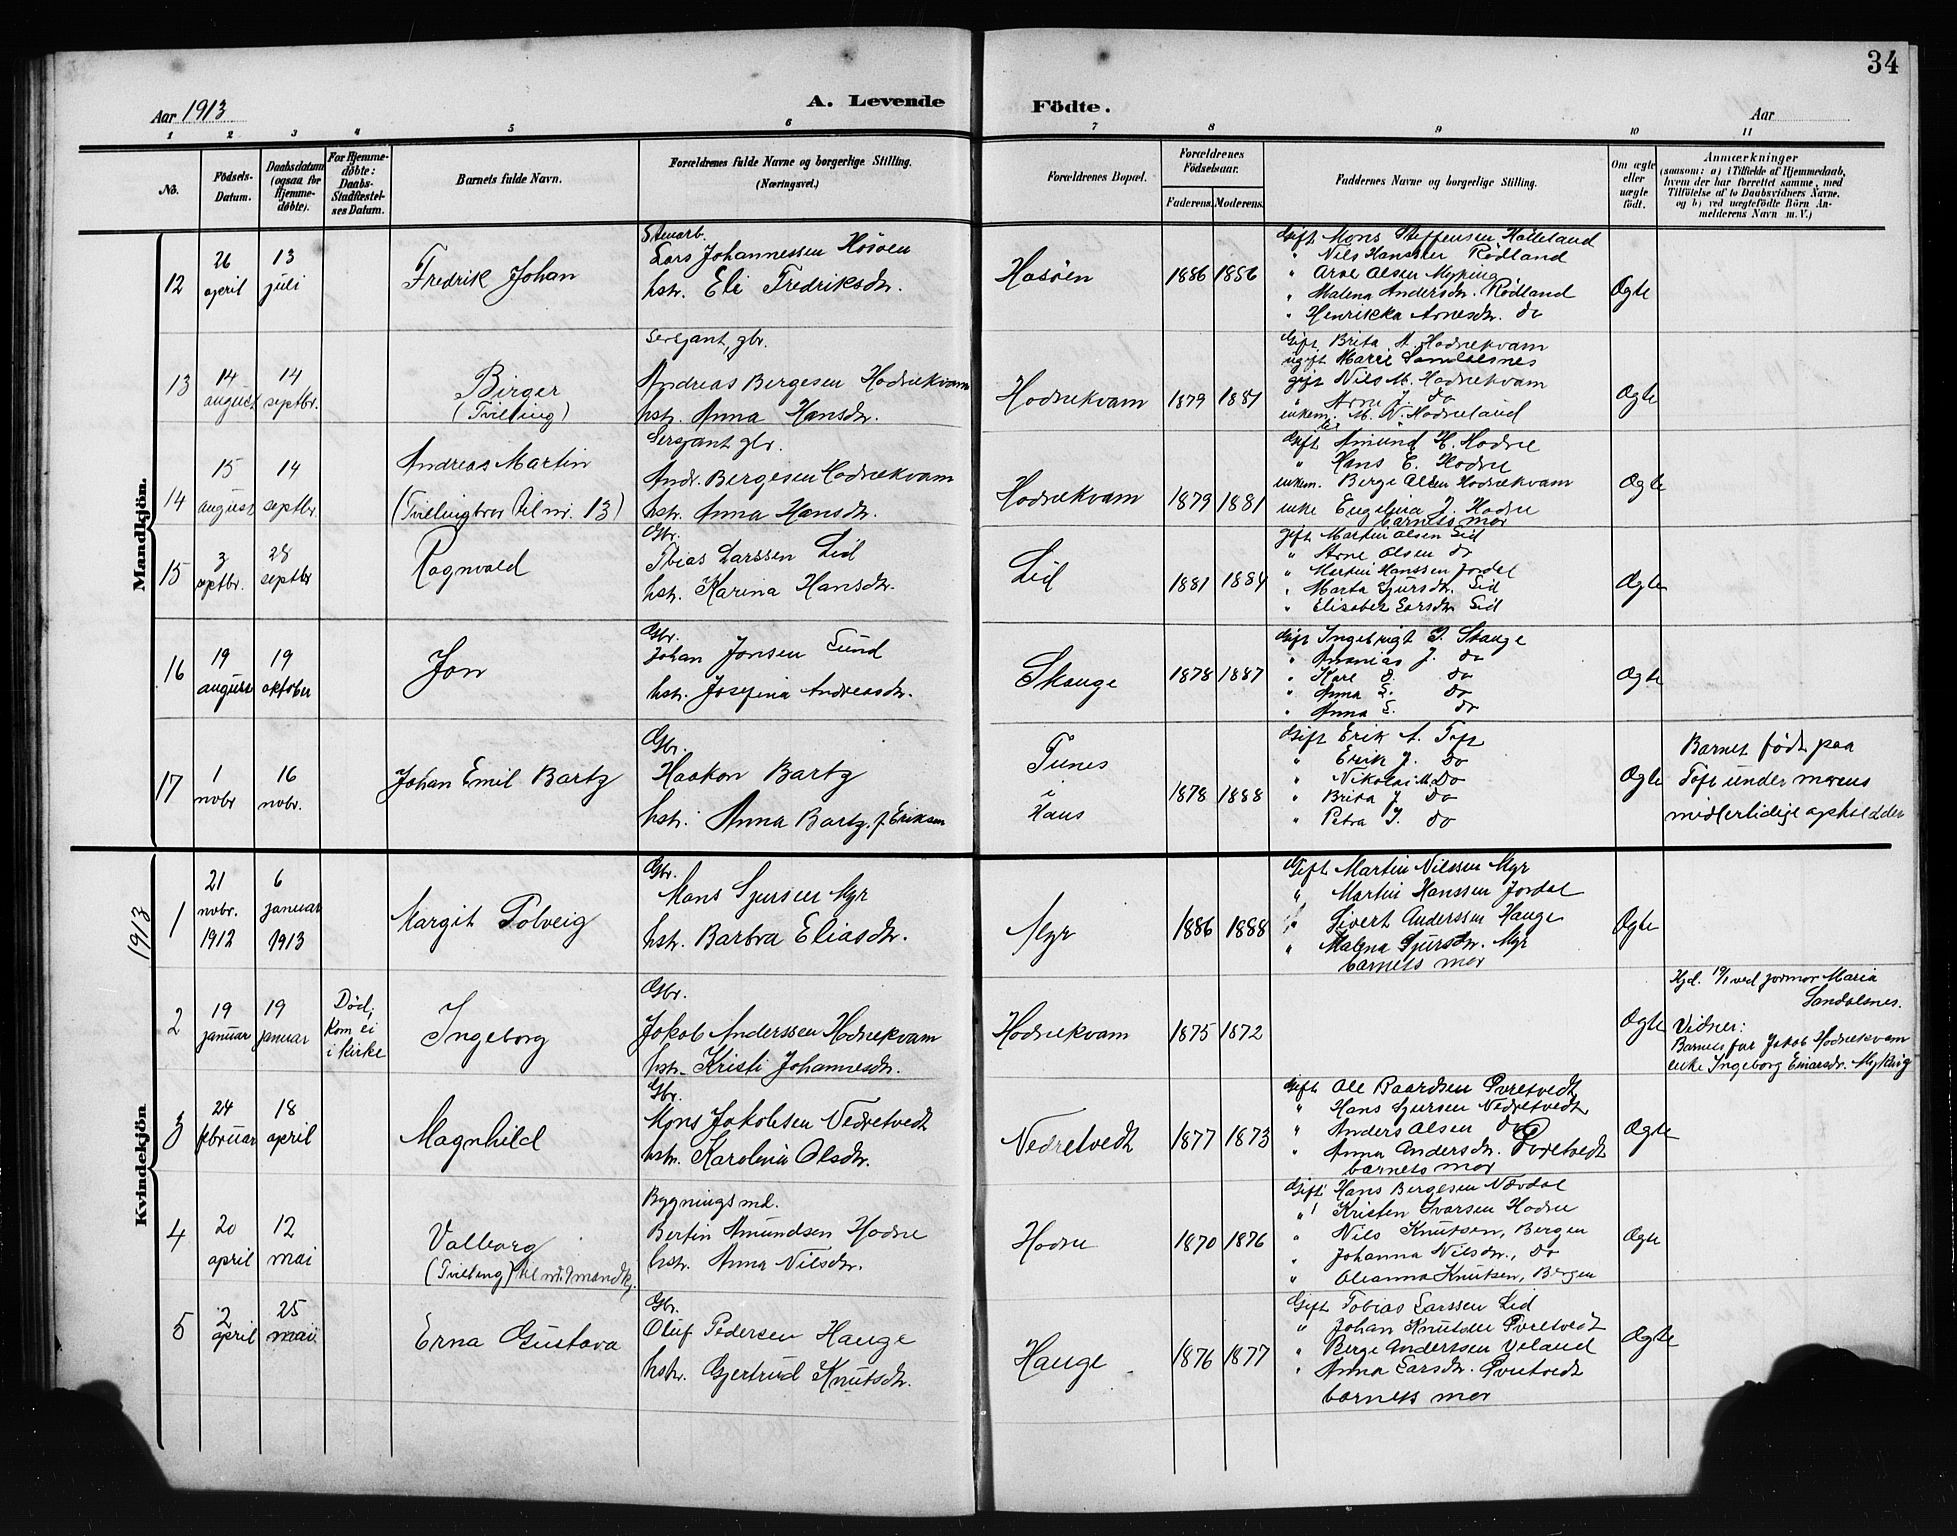 34
Aar 1913
A. Levende Födte.
Aar
1 2 3 4 5 6 7 8 9 10 11
No.
Födsels-Datum.
Daabsdatum (ogsaa for Hjemme-döbte).
For Hjemme-döbte: Daabs-Stadfæstel-ses Datum.
Barnets fulde Navn.
Forældrenes fulde Navne og borgerlige Stilling. (Næringsvei.)
Forældrenes Bopæl.
Forældrenes Födselsaar.
Faderens. Moderens.
Faddernes Navne og borgerlige Stilling.
Om ægte eller uægte födt.
Anmærkninger
(saasom: a) i Tilfælde af Hjemmedaab, hvem der har forrettet samme, med Tilföielse af to Daabsvidners Navne, og b) ved uægtefödte Börn An-melderens Navn m. V.)
Mandkjön.
12
26 april
13 juli
Fredrik Johan
Stenarb.
Lars Johannessen Hosøen
hstr. Eli Fredriksdr.
Hosøen
1886 1886
Gift Mons Steffensen Halleland
" Nils Rödland
" Arne Olsen Myking
" Malena Andersdr. Rödland
" Henrikka Arnesdr. do
Ægte
13
14 august
14 septbr.
Birger
(Tvilling)
Sersjant, gbr.
Andreas Bergesen Hodnekvam
hstr. Anna Hansdr.
Hodnekvam
1879 1881
Gift Brita A. Hodnekvam
ugift Marie Sandalsnes
gift Nils M. Hodnekvam
" Arne J. do
enkem. M. N. Hodneland
Ægte
14
15 august
14 septbr.
Andreas Martin
(Tvillingbror til nr. 13)
Sersjant gbr.
Andr. Bergesen Hodnekvam
hstr. Anna Hansdr.
Hodnekvam
1879 1881
Gift Amund H. Hodne
" Hans E. Hodne
enkem. Berge Olsen Hodnekvam
enke Engelina J. Hodne
barnets mor
Ægte
15
3 septbr.
28 septbr
Ragnvald
Gbr.
Tobias Larssen Lid
hstr. Karina Hansdr.
Lid
1881 1884
gift Martin Olsen Lid
" Arne Olsen do
" Martin Hanssen Jordal
" Marta Sjursdr. Lid
" Elisabet Larsdr. Lid
Ægte
16
19 august
19 oktober
Jon
Gbr.
Johan Jonsen Sund
hstr. Josefina Andreasdr.
Skauge
1878 1887
Gift Ingebrigt J. Skauge
" Ananias J. do
" Kare do
" Anna S. do
" Anna S. do
Ægte
17
1 nobr
16 nobr.
Johan Emil Bartz
Gbr.
Haakon Bartz
hstr. Anna Bartz, f. Eriksen
Tunes
i
Haus
1878 1888
Gift Erik A. Toft
" Erik J. do
" Nikolai M. do
" Brita J. do
" Petra J. do
Ægte
Barnet født paa
Toft under morens
midlertidige ophold der
1913
Kvindekjön
1
21 nobr. 1912
6 januar 1913
Margit Solveig
Gbr.
Mons Sjursen Myr
hstr. Barbra Eliasdr.
Myr
1886 1888
Gift Martin Nilssen Myr
" Martin Hanssen Jordal
" Sivert Anderssen Hauge
" Malena Sjursdr. Myr
barnets mor
Ægte
2
19 januar
19 januar
Død, kom ei i kirke
Ingeborg
Gbr.
Jakob Anderssen Hodnekvam
hstr. Kristi Johannesdr.
Hodnekvam
1875 1872
Ægte
Hjd. 19/1 ved jormor Maria
Sandalsnes.
Vidner:
Barnets far Jakob Hodnekvam
enke Ingeborg Einarsdr. Myking
3
24 februar
18 april
Magnhild
Gbr.
Mons Jakobsen Nedretvedt
hstr. Karolina Olsdr.
Nedretvedt
1877 1873
Gift Ole Baardsen Øvretvedt
" Hans Sjursen Nedretvedt
" Anders Olsen do
" Anna Andersdr. Øvretvedt
barnets mor
Ægte
4
20 april
12 mai
Valborg
(Tvilling) til nr. 9 mandkj.
Bygningsmd.
Bertin Amundsen Hodne
hstr. Anna Nilsdr.
Hodne
1870 1876
Gift Hans Bergesen Nævdal
" Kristen Ivarsen Hodne
" Nils Knutsen, Bergen
" Johanna Nilsdr., do
" Oleanna Knutsen, Bergen
Ægte
5
2 april
25 mai
Erna Gustava
Gbr.
Oluf Pedersen Hauge
hstr. Gjertrud Knutsdr.
Hauge
1876 1877
Gift Tobias Larssen Lid
" Johan Knutsen Øvretvedt
" Berge Anderssen Veland
" Anna Larsdr. Øvretvedt
barnets mor
Ægte